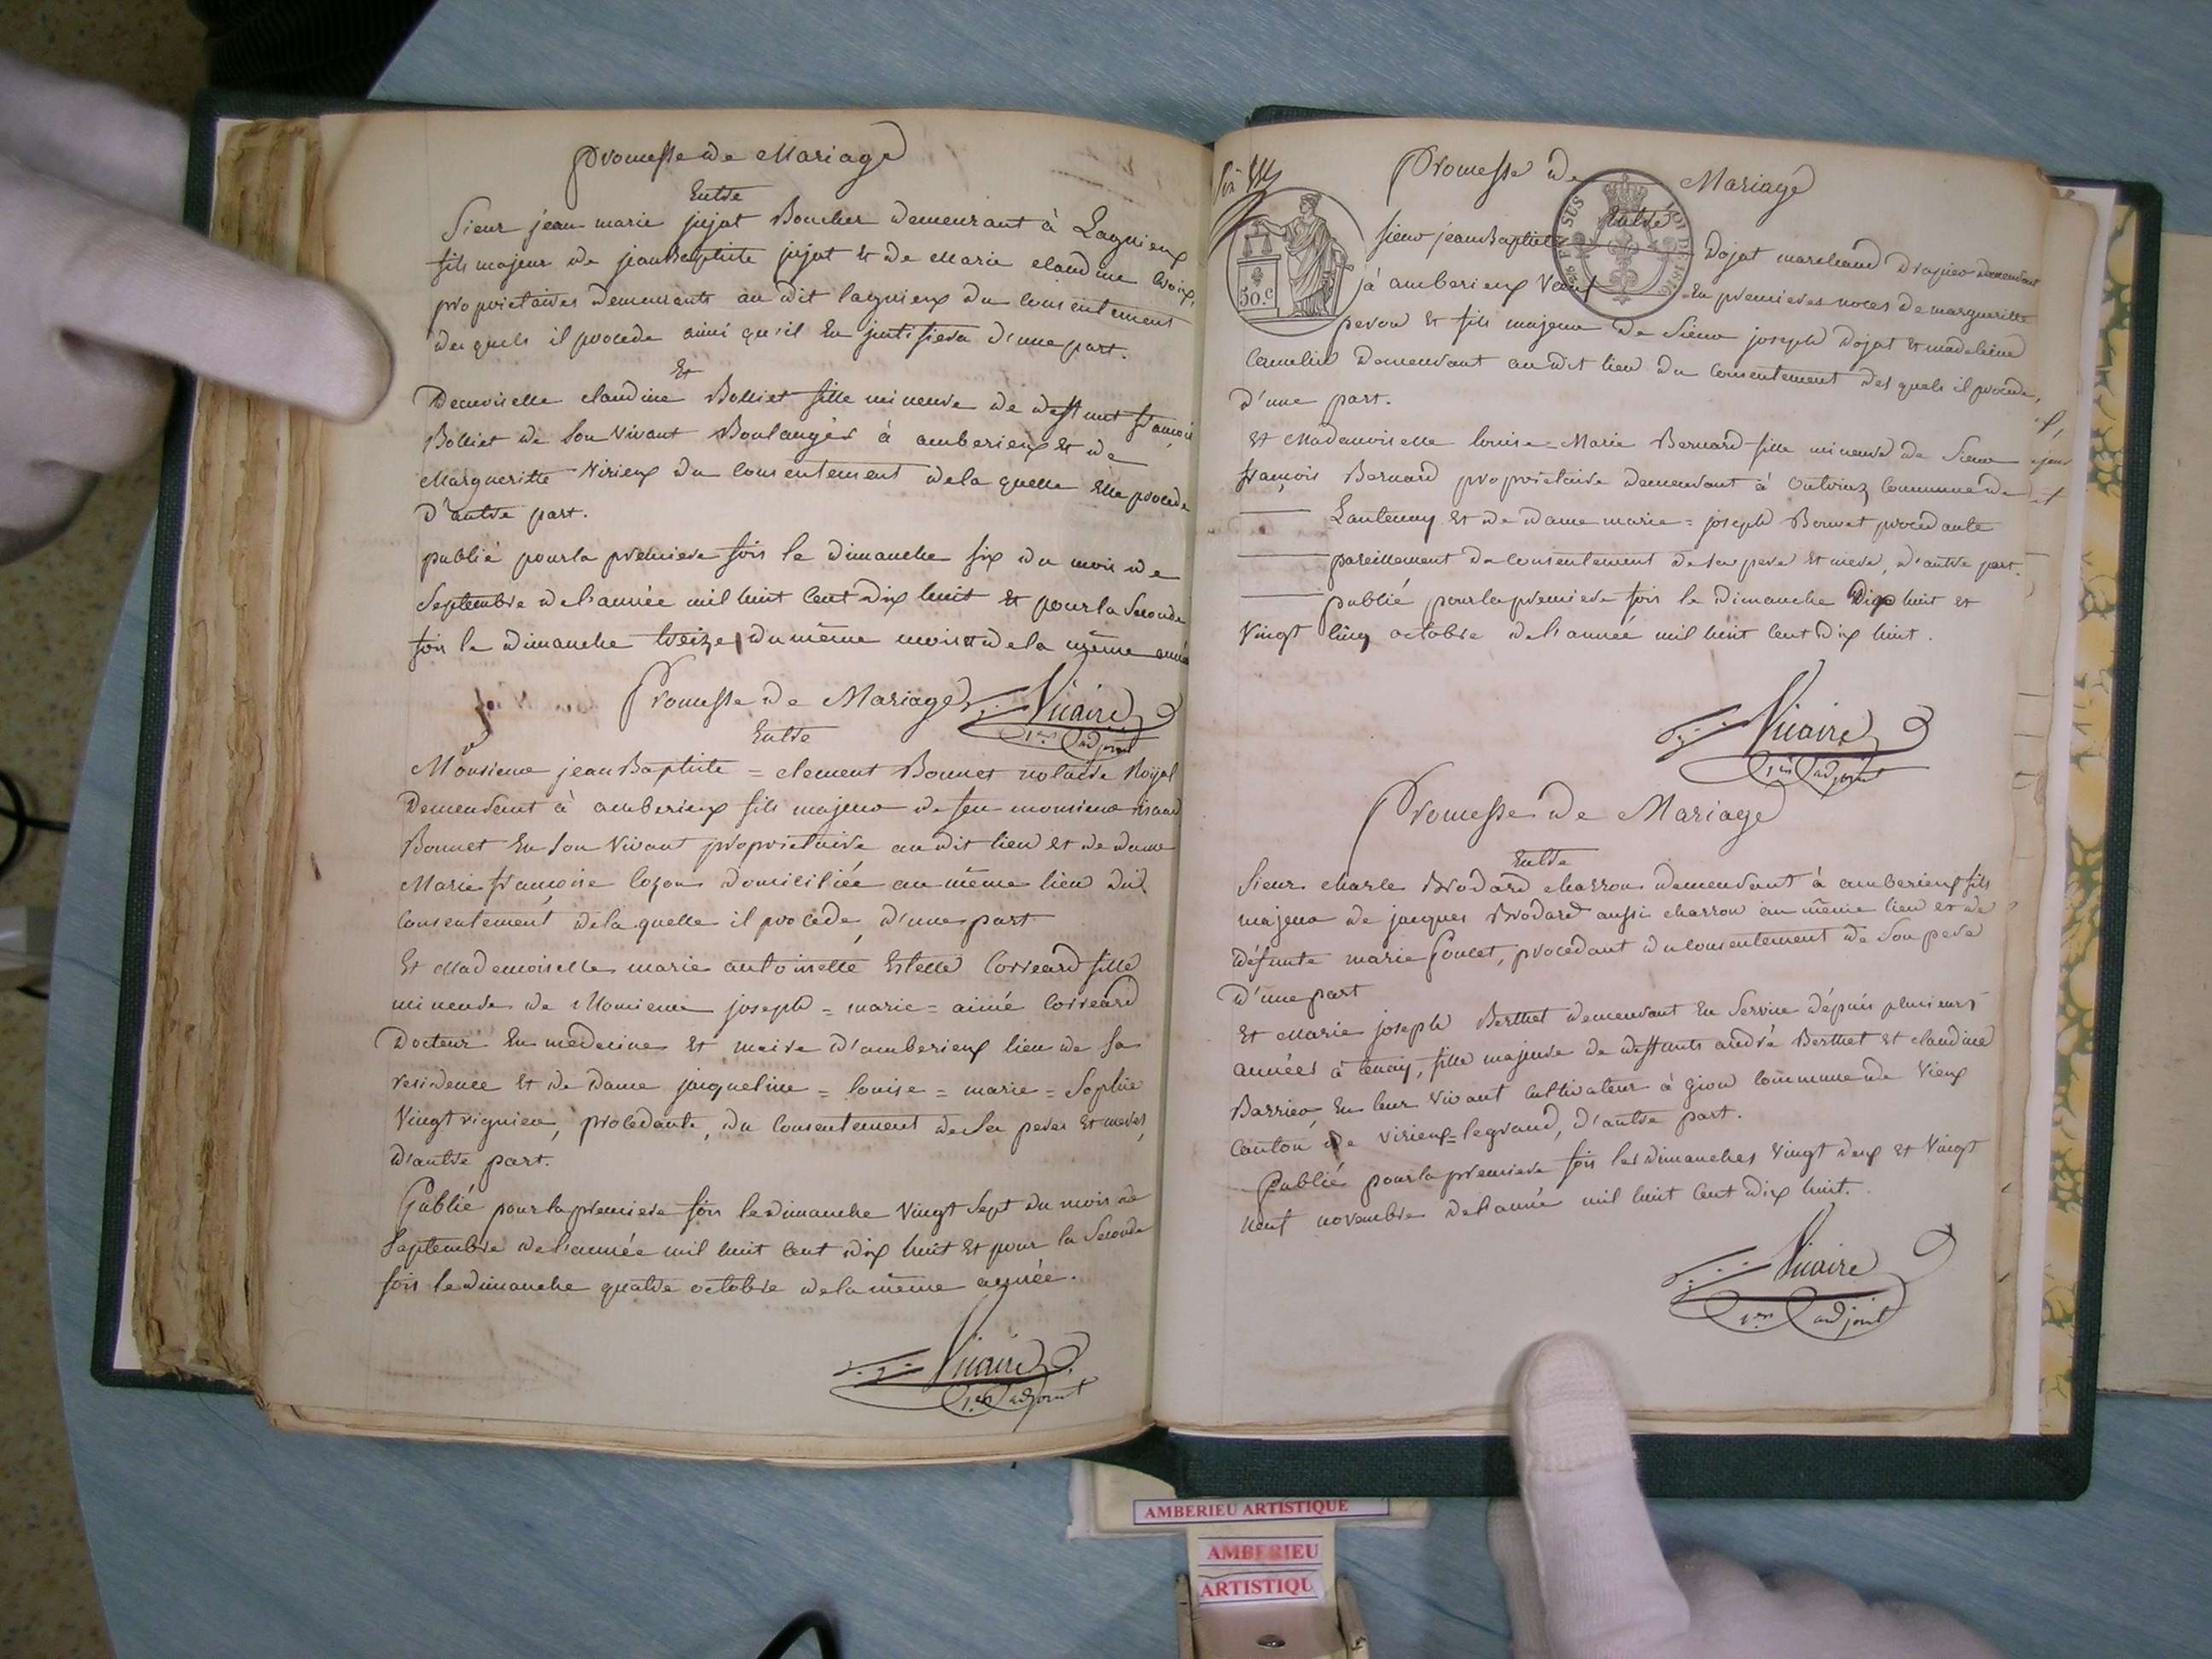 Promesse de Mariage
Entre
Sieur jean marie jujat Boucher demeurant à Lagnieux
fils majeur de jean Baptiste jujat et de Marie claudine Croix,
proprietaires demeurants au dit lagnieux du consentement
des quels il procede ainsi qu'il En justifiera d'une part.
Et
Demoiselle claudine Bolliet fille mineure de deffunt françois
Bolliet de son vivant Boulanger à amberieux et de
Margueritte Virieux du consentement de la quelle Elle procede
D'autre part.
publié pour la premiere fois le dimanche six du mois de
Septembre de l'année mil huit Cent dix huit et pour la Seconde
fois le dimanche treize du même mois et de la même année
Promesse de Mariage
Vicaire
1er adjoint
Entre
Monsieur jean Baptiste = clement Bonnet notaire Royal
Demeurant à amberieux fils majeur de feu monsieur
Bonnet En son Vivant proprietaire au dit lieu et de dame
Marie françoise domiciliée au même lieu du
Consentement de la quelle il procede, d'une part
Et Mademoiselle marie antoinette Estelle Correard fille
mineure de Monsieur joseph = marie = aimé Correard
Docteur En medecine Et maire d'amberieux lieu de sa
residence et de Dame jacqueline = louise = marie = Sophie
Vingtrignier, procedante, du consentement de ses peres et meres,
d'autre part.
Publié pour la premiere fois le dimanche Vingt Sept du mois de
Septembre de l'année mil huit Cent dix huit et pour la Seconde
fois le dimanche quatre octobre de la même année.
Vicaire
1er adjoint
Promesse de Mariage
Entre
50.c
sieur jean Baptiste Dojat marchand Drapier demeurant
à amberieux Veuf En premieres noces de margueritte
peron et fils majeur de Sieur joseph Dojat et madeleine
Camelin Demeurant au dit lieu du consentement des quels il procede,
d'une part.
Et Mademoiselle louise = Marie Bernard fille mineure de Sieur
françois Bernard proprietaire demeurant à Outriaz Commune de
Lantenay et de dame marie = joseph Bonnet procedante
pareillement du consentement de ses pere et mere, d'autre part.
publié pour la premiere fois le dimanche Dix huit et
Vingt Cinq octobre de l'année mil huit Cent dix huit.
Vicaire
1er adjoint
Promesse de Mariage
Entre
Sieur charle Brodard charron demeurant à amberieux fils
majeur de jacques Brodard aussi charron au même lieu et de
défunte marie Goncet, procedant du consentement de son pere
d'une part
Et Marie joseph Berthet demeurant En Service dépuis plusieurs
années à tenay, fille majeure de deffunts andré Berthet et claudine
Barrier, En leur vivant Cultivateur à gion Commune de Vieux
Canton de virieux = legrand, d'autre part.
Publié pour la premiere fois les dimanches Vingt deux et Vingt
neuf novembre de l'année mil huit Cent dix huit.
Vicaire
1er adjoint
AMBERIEU ARTISTIQUE
AMBERIEU
ARTISTIQU